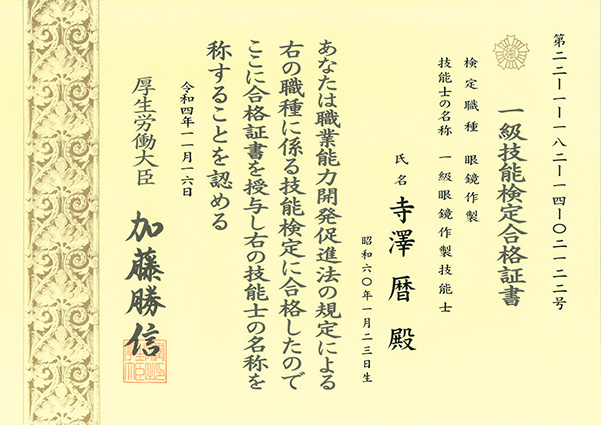 第二二－一－一八二－一四－〇二一二二号
一級技能検定合格証書
検定職種　眼鏡作製
技能士の名称　一級眼鏡作製技能士
氏名　寺澤暦殿
昭和六〇年一月二三日生
あなたは職業能力開発促進法の規定による
右の職種に係る技能検定に合格したので
ここに合格証書を授与し右の技能士の名称を
称することを認める
令和四年一一月一六日
厚生労働大臣　加藤勝信